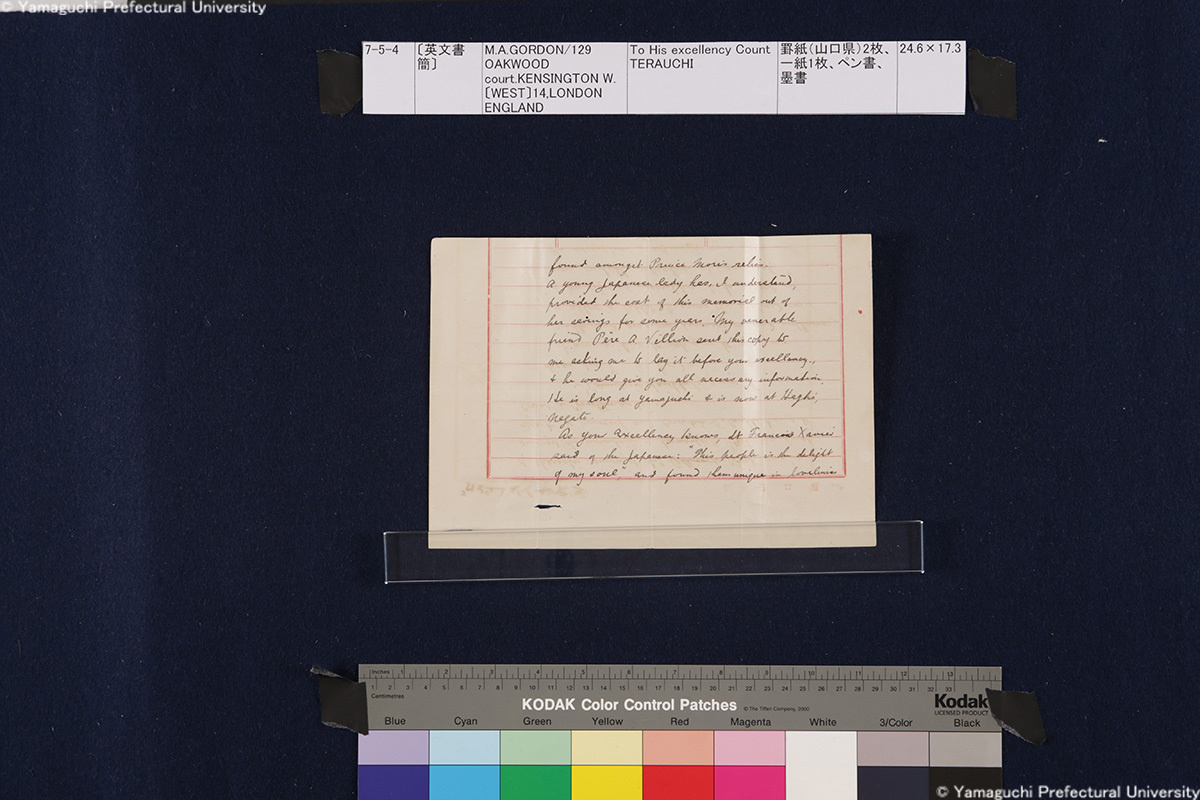 © Yamaguchi Prefectural University
7-5-4
〔英文書
簡〕
M.A.GORDON/129
OAKWOOD
court.KENSINGTON W.
〔WEST〕14,LONDON
ENGLAND
To His excellency Count
TERAUCHI
罫紙(山口県)2枚、
一紙1枚、ペン書、
墨書
24.6×17.3
found amongst Prince Mori's relics.
A young Japanese lady has, I understand,
provided the cost of this memorial out of
her savings for some years. My venerable
friend Père A. Villion sent this copy to
me asking me to lay it before your excellency,
& he would give you all necessary information
He is long at Yamaguchi & is now at Haghi,
Nagato
As your Excellency knows, St Francis Xavier
said of the Japanese: "This people is the delight
of my soul," and found them unique in loveliness
Inches 1 2 3 4 5 6 7 8 9 10 11 12 13
1 2 3 4 5 6 7 8 9 10 11 12 13 14 15 16 17 18 19 20 21 22 23 24 25 26 27 28 29 30 31 32 33
Centimetres
KODAK Color Control Patches
© The Tiffen Company, 2000
Kodak
LICENSED PRODUCT
Blue Cyan Green Yellow Red Magenta White 3/Color Black
© Yamaguchi Prefectural University